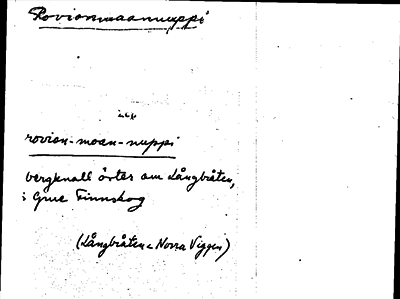 Rovionmaannuppi
rovion-maan-nuppi
bergknall öster om Långbråten,
i Grue Finnskog
(Långbråten = Norra Viggen)